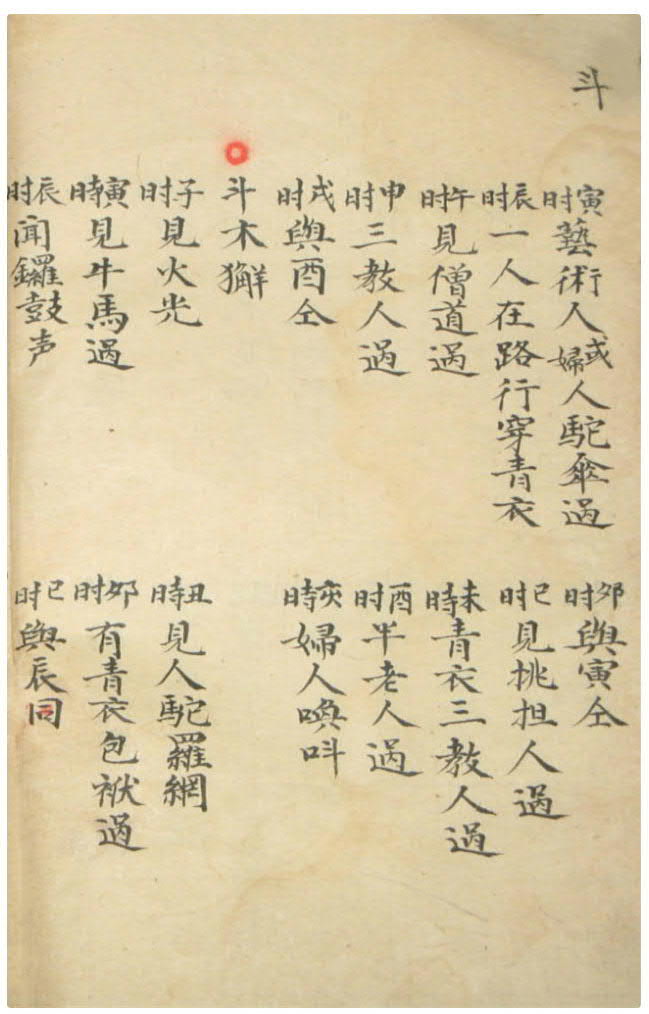 斗
寅时藝術人或婦人駝傘过
卯时與寅仝
辰时一人在路行穿青衣
巳时見挑担人過
午时見僧道過
未時青衣三教人過
申时三教人過
酉时半老人過
戌时與酉仝
亥時婦人喚呌
斗木獬
子时見火光
丑時見人駝羅網
寅時見牛馬過
卯时有青衣包袱過
辰时聞鑼鼓声
巳时與辰同